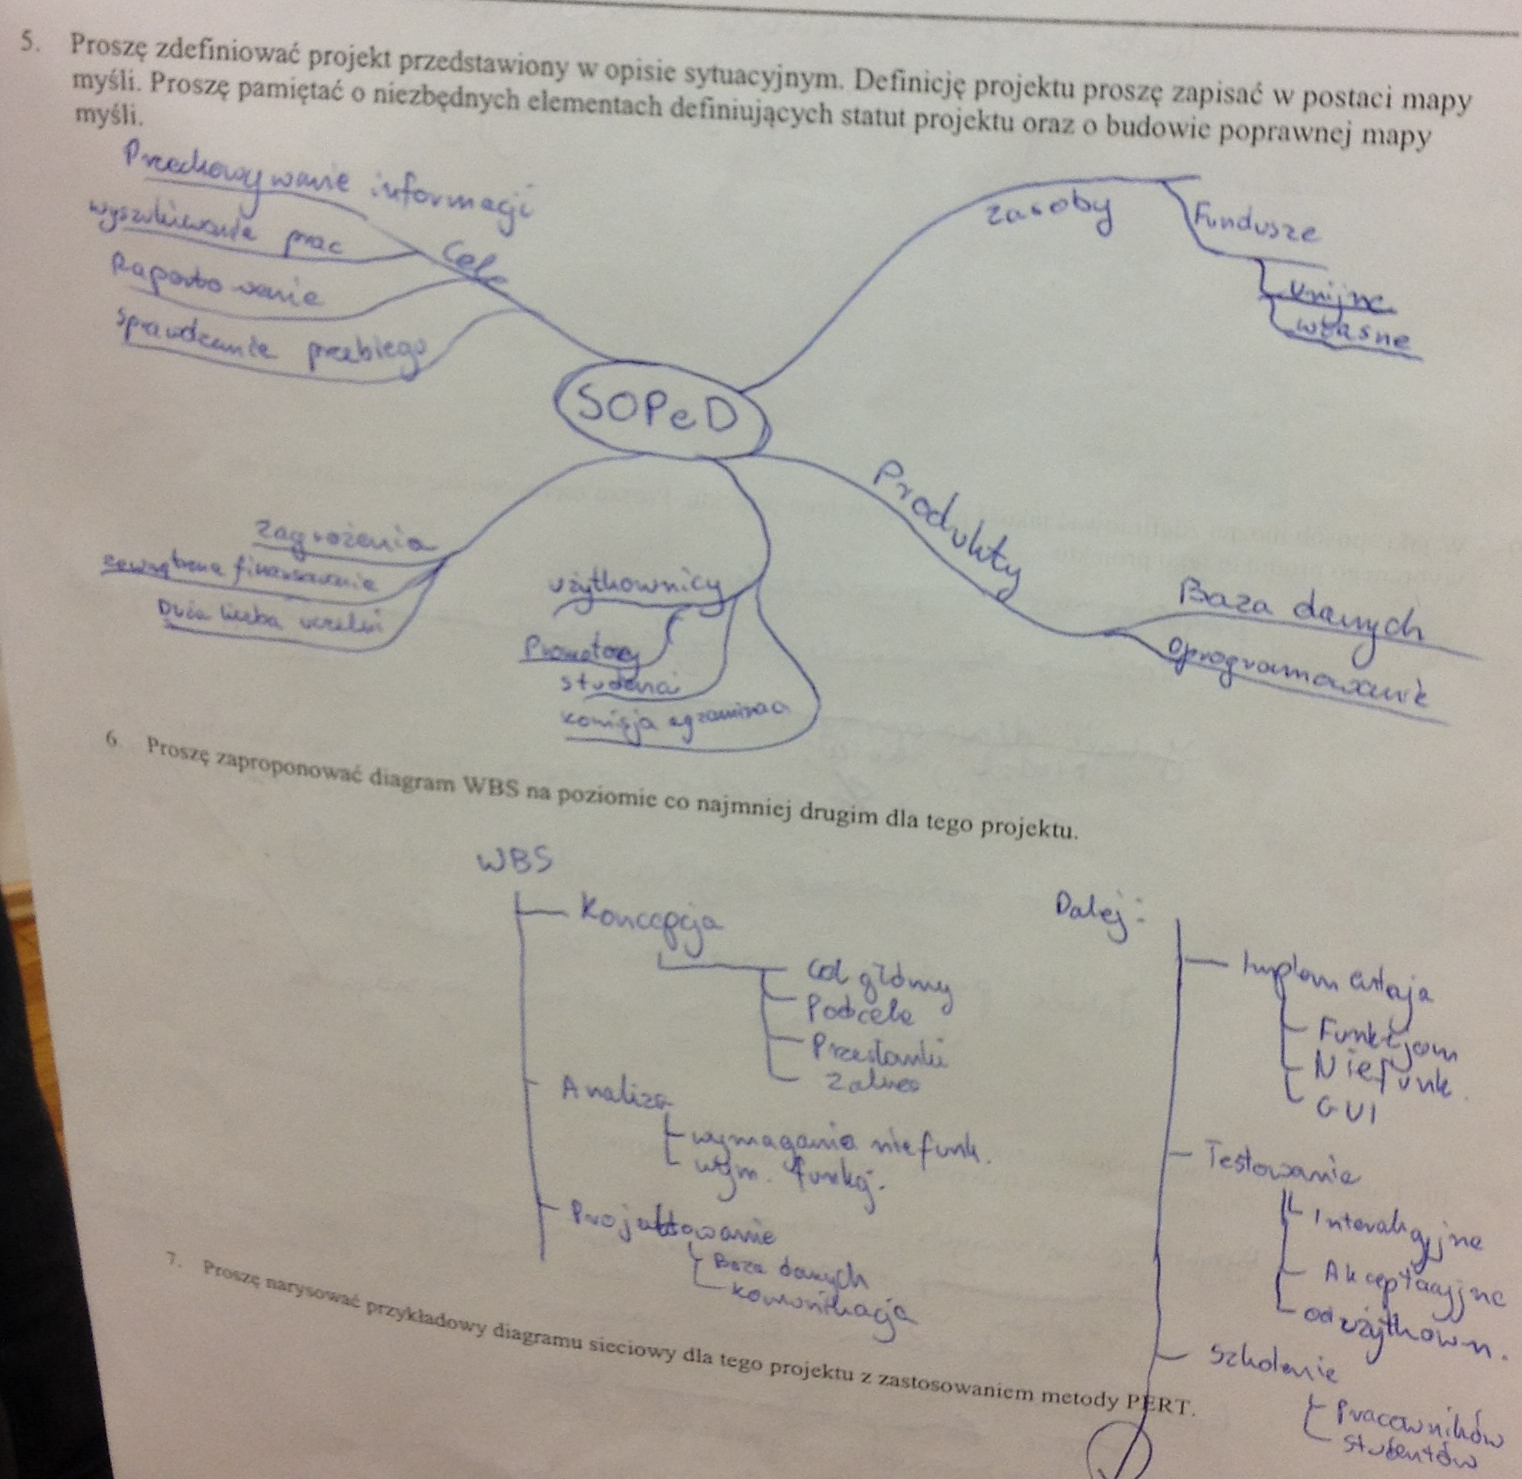 5. Proszę zdefiniować projekt przedstawiony w opisie sytuacyjnym. Definicję projektu proszę zapisać w postaci mapy
myśli. Proszę pamiętać o niezbędnych elementach definiujących statut projektu oraz o budowie poprawnej mapy
myśli.
Przechowywanie informacji
wyszukiwanie prac
Raportowanie
Sprawdzanie przebiegu
Cele
Zasoby
Fundusze
Unijne
własne
SOPeD
Produkty
Baza danych
oprogramowanie
Zagrożenia
zewnętrzne finansowanie
Duża liczba uczelni
użytkownicy
Promotorzy
studenci
komisja egzaminac
6. Proszę zaproponować diagram WBS na poziomie co najmniej drugim dla tego projektu.
WBS
Koncepcja
Cel główny
Podcele
Przesłanki
Zakres
Analiza
wymagania niefunk.
wym. funkcj.
Projektowanie
Baza danych
komunikacja
Dalej:
Implementacja
Funkcjon
Niefunk.
GUI
Testowanie
Integracyjne
Akceptacyjne
od użytkown.
Szkolenie
Pracowników
studentów
7. Proszę narysować przykładowy diagramu sieciowy dla tego projektu z zastosowaniem metody PERT.